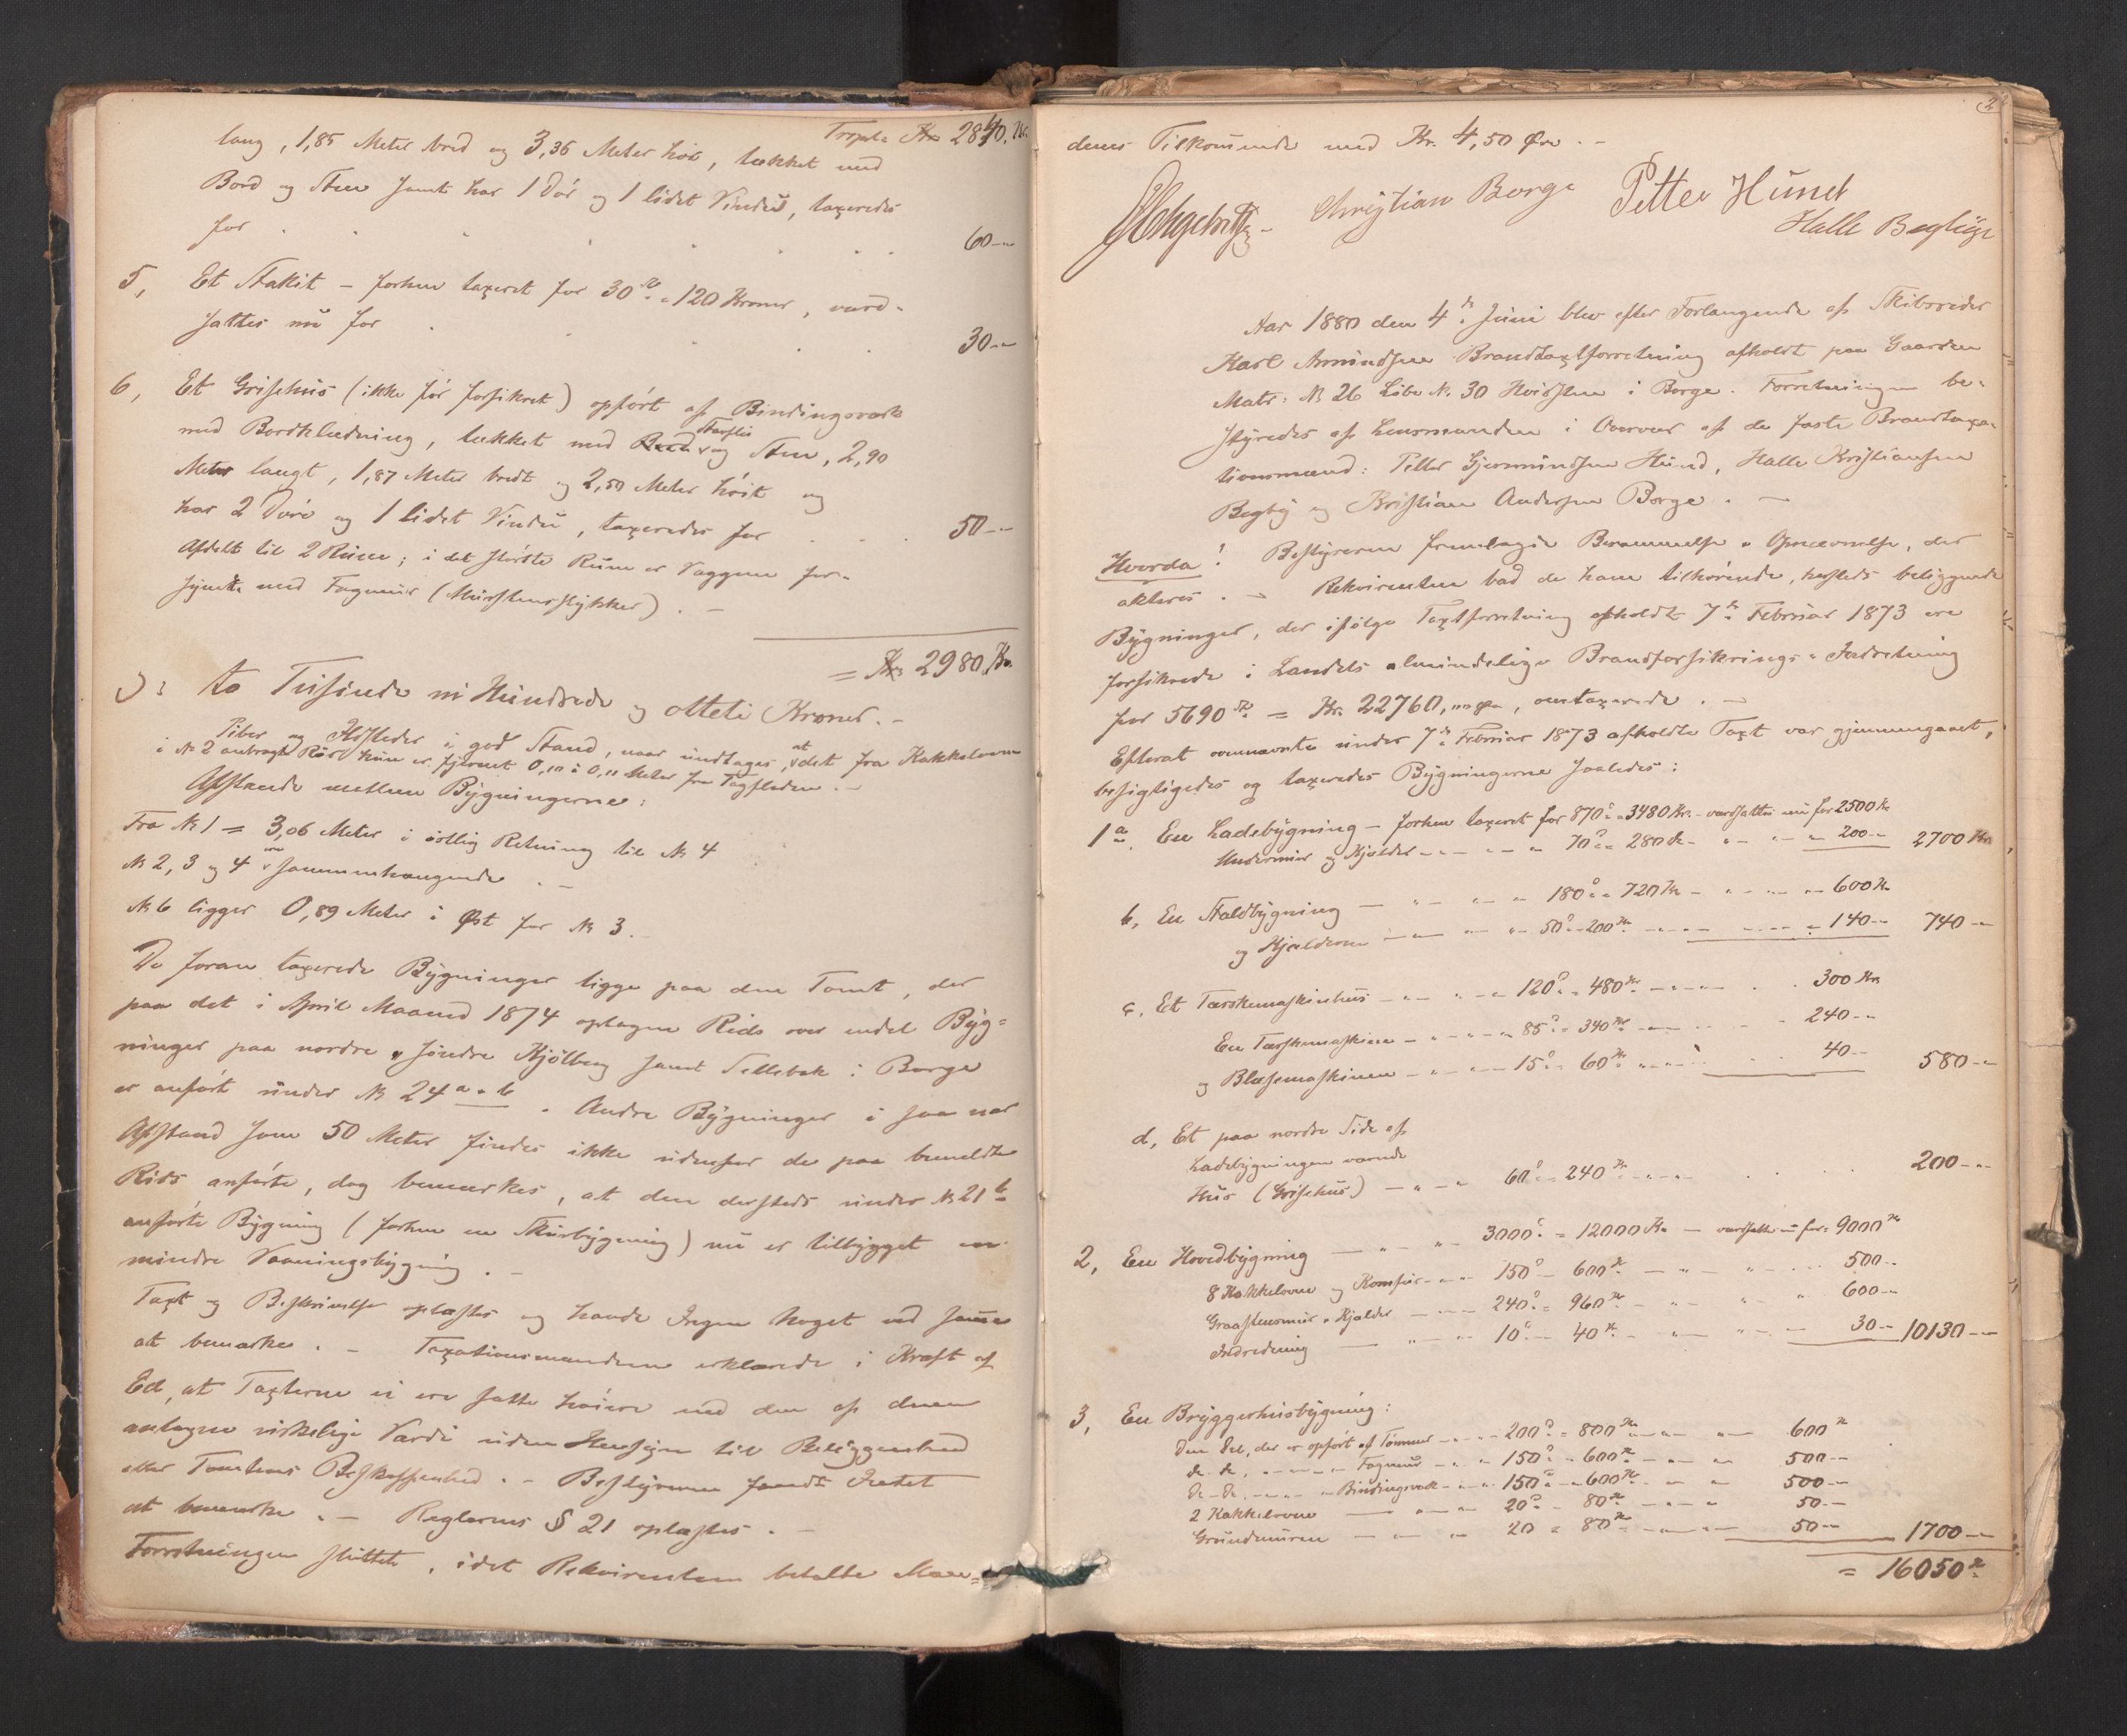 Transp. Kr. 2840. Kr.
lang, 1,85 Meter bred og 3,35 Meter høi, tækket med
Bord og Sten samt har 1 Dør og 1 lidet Vindu, taxeredes
for 60 --
5, Et Stakit - forhen taxeret for 30 = 120 Kroner, værd-
sattes nu for 30 --
6, Et Grisehus (ikke før forsikret) opført af Bindingsværk
med Bordklædning, tækket med og Sten, 2,90
Meter langt, 1,87 Meter bredt og 2,50 Meter høit og
har 2 Døre og 1 lidet Vindu, taxeredes for 50 --
Afdelt til 2 Rum; i det største Rum er Væggene for-
synede med Fagmur (Murstensstykker). -
= Kr. 2980 Kr.
to Tusinde ni Hundrede og otteti Kroner. -
Piber og Ildsteder i god Stand, naar undtages, at det fra Kakkelovnen
i № 2 anbragte Rør kun er fjernet 0,10 à 0,11 Meter fra Tagfladen. -
Afstande mellem Bygningerne:
Fra № 1 = 3,06 Meter i østlig Retning til № 4
№ 2, 3 og 4 ere sammenhængende. -
№ 6 ligger 0,89 Meter i Øst for № 3. -
De foran taxerede Bygninger ligge paa den Tomt, der
paa det i April Maaned 1874 optagne Rids over endel Byg-
ninger paa nordre & søndre Kjølberg samt Sellebak i Borge
er anført under № 24 a & b. Andre Bygninger i saa nær
Afstand som 50 Meter findes ikke udenfor de paa bemeldte
Rids anførte, dog bemærkes, at den dersteds under № 21 b
anførte Bygning (forhen en Skurbygning) nu er tilbygget en
mindre Vaaningsbygning. -
Taxt og Beskrivelse oplæstes og havde Ingen Noget ved samme
at bemærke. - Taxationsmændene erklærede i Kraft af
Ed, at Taxterne ei ere satte høiere end den af dem
antagne virkelige Værdi uden Hensyn til Beliggenhed
eller Tomtens Beskaffenhed. - Bestyreren fandt Intet
at bemærke. - Reglernes § 21 oplæstes. -
Forretningen sluttet, idet Rekvirenten betalte Mæn-
2
denes Tilkommende med Kr. 4,50 Øre. -
Christian Borge Petter Hund
Halle Begbye
Aar 1880 den 4de Juni blev efter Forlangende af Skibsreder
Karl Amundsen Brandtaxtforretning afholdt paa Gaarden
Matr: № 26 Løbe № 30 Hvidsten i Borge. Forretningen be-
styredes af Lensmanden i Overvær af de faste Brandtaxa-
tionsmænd: Petter Gjermundsen Hund, Halle Kristiansen
Begby og Kristian Andersen Borge. -
Hvorda! Bestyreren fremlagde Berammelse & Opnævnelse, der
akteres. - Rekvirenten bad de ham tilhørende, hersteds beliggende
Bygninger, der ifølge Taxtforretning afholdt 7de Februar 1873 ere
forsikrede i Landets almindelige Brandforsikrings-Indretning
for 5690 = Kr. 22760, omtaxerede. -
Efterat ovennævnte under 7de Februar 1873 afholdte Taxt var gjennemgaaet,
besigtigedes og taxeredes Bygningerne saaledes:
1 a, En Ladebygning - forhen taxeret for 870 = 3480 Kr. - værdsattes nu for 2500 Kr
Undermur og Kjælder 70 = 280 Kr - 200 -- 2700 Kr
b, En Staldbygning 180 = 720 Kr - 600 Kr
og Kjælderen 50 = 200 Kr 140 -- 740 --
c, Et Tærskemaskinhus 120 = 480 Kr 300 Kr
En Tærskemaskine 85 = 340 Kr 240 --
og Blæsemaskinen 15 = 60 Kr 40 -- 580 --
d, Et paa nordre Side af
Ladebygningen værende
Hus (Grisehus) 60 = 240 Kr 200 --
2, En Hovedbygning 3000 = 12000 Kr - værdsattes nu for 9000 Kr
8 Kakkelovne og Komfur 150 = 600 Kr 500 --
Graastensmur & Kjælder 240 = 960 Kr 600 --
Indredning 10 = 40 Kr 30 -- 10130 --
3, En Bryggerhusbygning:
Den Del, der er opført af Tømmer 200 = 800 Kr 600 Kr
do. do. Fagmur 150 = 600 Kr 500 --
do. do. Bindingsværk 150 = 600 Kr 500 --
2 Kakkelovne 20 = 80 Kr 50 --
Grundmuren 20 = 80 Kr 50 -- 1700 --
= 16050 Kr